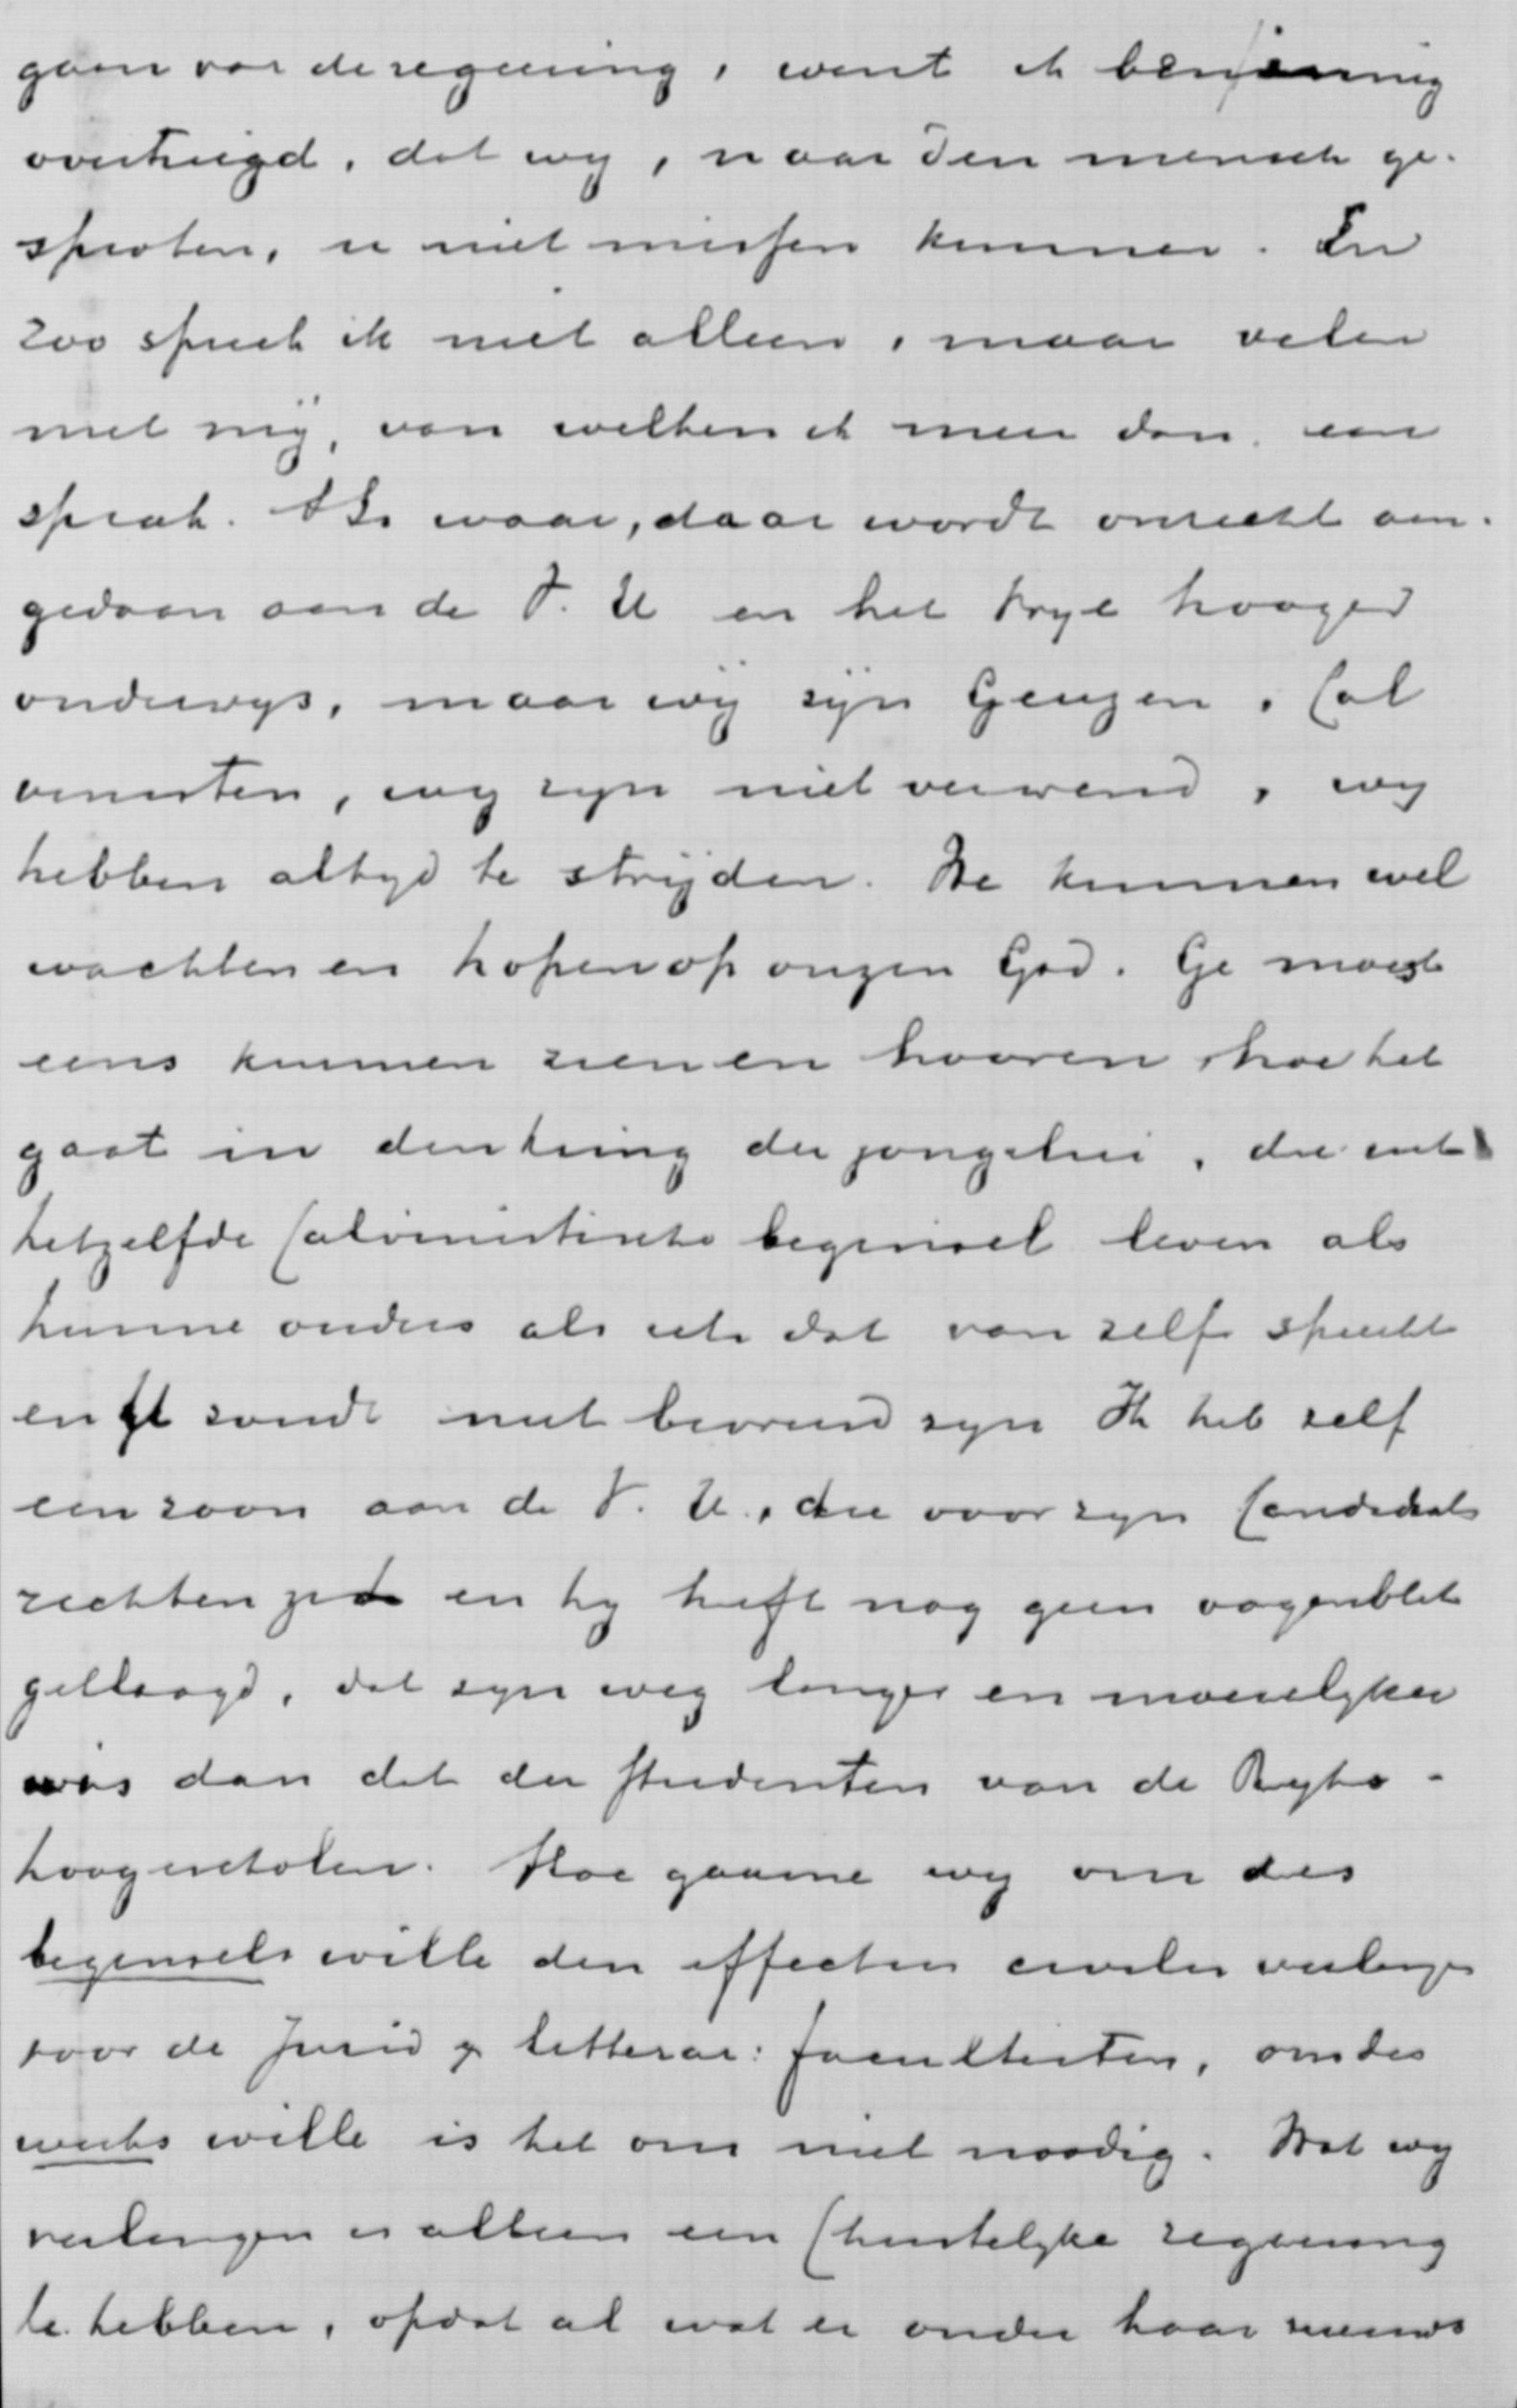 gaan voor de regeering, want ik ben innig
overtuigd, dat wij, naar den mensch ge-
sproken, u niet missen kunnen. En
zoo spreek ik niet alleen, maar velen
met mij, van welken ik meer dan een
sprak. 't Is waar, daar wordt onrecht aan-
gedaan aan de V. U en het Vrije hooger
onderwijs, maar wij zijn Geuzen, Cal
venisten, wij zijn niet verwend, wij
hebben altijd te strijden. We kunnen wel
wachten en hopen op onzen God. Ge moest
eens kunnen zien en hooren hoe het
gaat in den kring der jongelui, die uit
hetzelfde Calvinistische beginsel leven als
hunne ouders als iets dat van zelf spreekt
en zoudt niet bevreesd zijn Ik heb zelf
een zoon aan de V. U., die voor zijn Candidaats
rechten zit en hij heeft nog geen oogenblik
geklaagd, dat zijn weg langer en moeielijker
was dan dat der studenten van de Rijks-
hoogescholen. Hoe gaarne wij om des
beginsels wille den effectus civilis verlangen
voor de Jurid & litterar: faculteiten, om des
werks wille is het ons niet noodig. Wat wij
verlangen is alleen een Christelijke regeering
te hebben, opdat al wat er onder haar